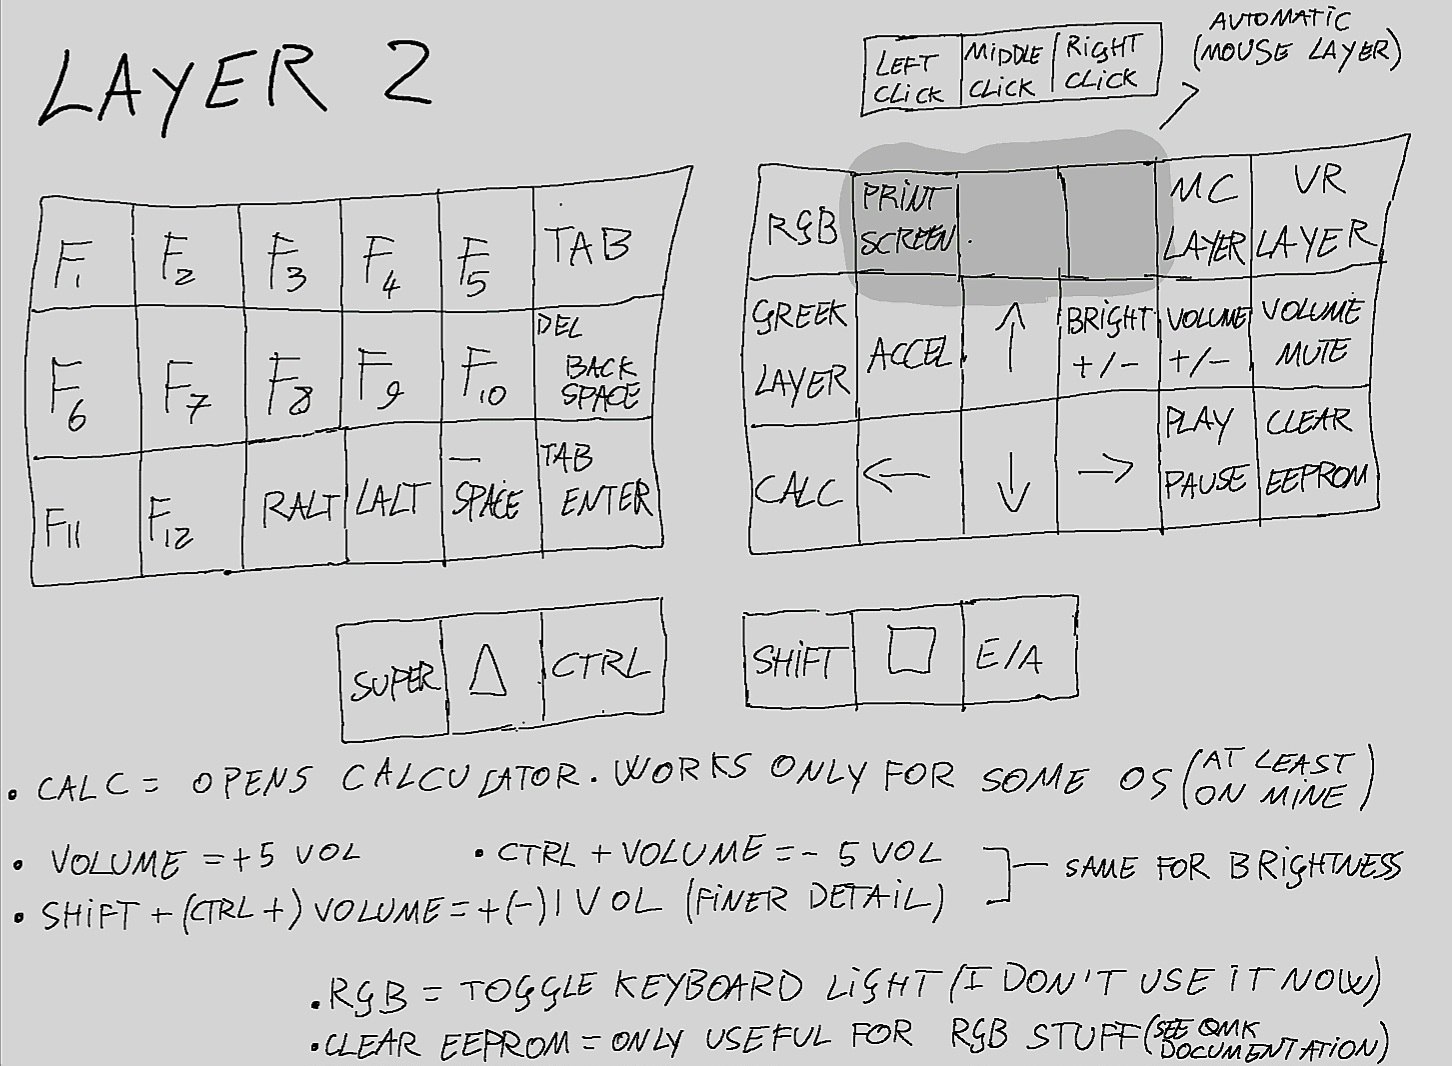 LAYER 2
AUTOMATIC
(MOUSE LAYER)
LEFT CLICK
MIDDLE CLICK
RIGHT CLICK
F1 F2 F3 F4 F5 TAB
F6 F7 F8 F9 F10 DEL BACK SPACE
F11 F12 RALT LALT — SPACE TAB ENTER
RGB PRINT SCREEN MC LAYER VR LAYER
GREEK LAYER ACCEL ↑ BRIGHT +/- VOLUME +/- VOLUME MUTE
CALC ← ↓ → PLAY PAUSE CLEAR EEPROM
SUPER △ CTRL
SHIFT □ E/A
• CALC = OPENS CALCULATOR. WORKS ONLY FOR SOME OS (AT LEAST ON MINE)
• VOLUME = +5 VOL • CTRL + VOLUME = - 5 VOL
SAME FOR BRIGHTNESS
• SHIFT + (CTRL +) VOLUME = +(-) 1 VOL (FINER DETAIL)
• RGB = TOGGLE KEYBOARD LIGHT (I DON'T USE IT NOW)
• CLEAR EEPROM = ONLY USEFUL FOR RGB STUFF (SEE QMK DOCUMENTATION)